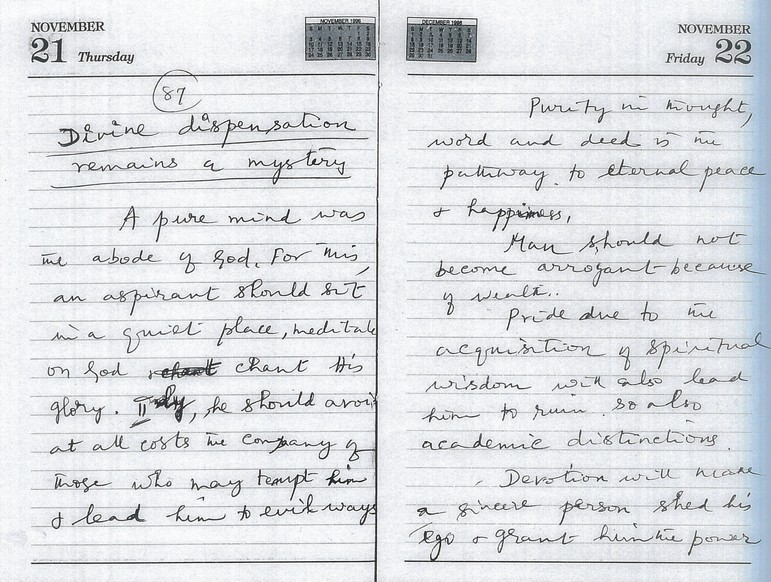 NOVEMBER
21 Thursday
NOVEMBER 1996
87
Divine dispensation
remains a mystery
A pure mind was
the abode of God. For this,
an aspirant should sit
in a quiet place, meditate
on God chant His
glory. IIdly, he should avoid
at all costs the company of
those who may tempt him
& lead him to evil ways
DECEMBER 1996
NOVEMBER
Friday 22
Purity in thought,
word and deed is the
pathway to eternal peace
& happiness,
Man should not
become arrogant because
of wealth..
Pride due to the
acquisition of spiritual
wisdom will also lead
him to ruin. So also
academic distinctions.
Devotion will make
a sincere person shed his
ego & grant him the power